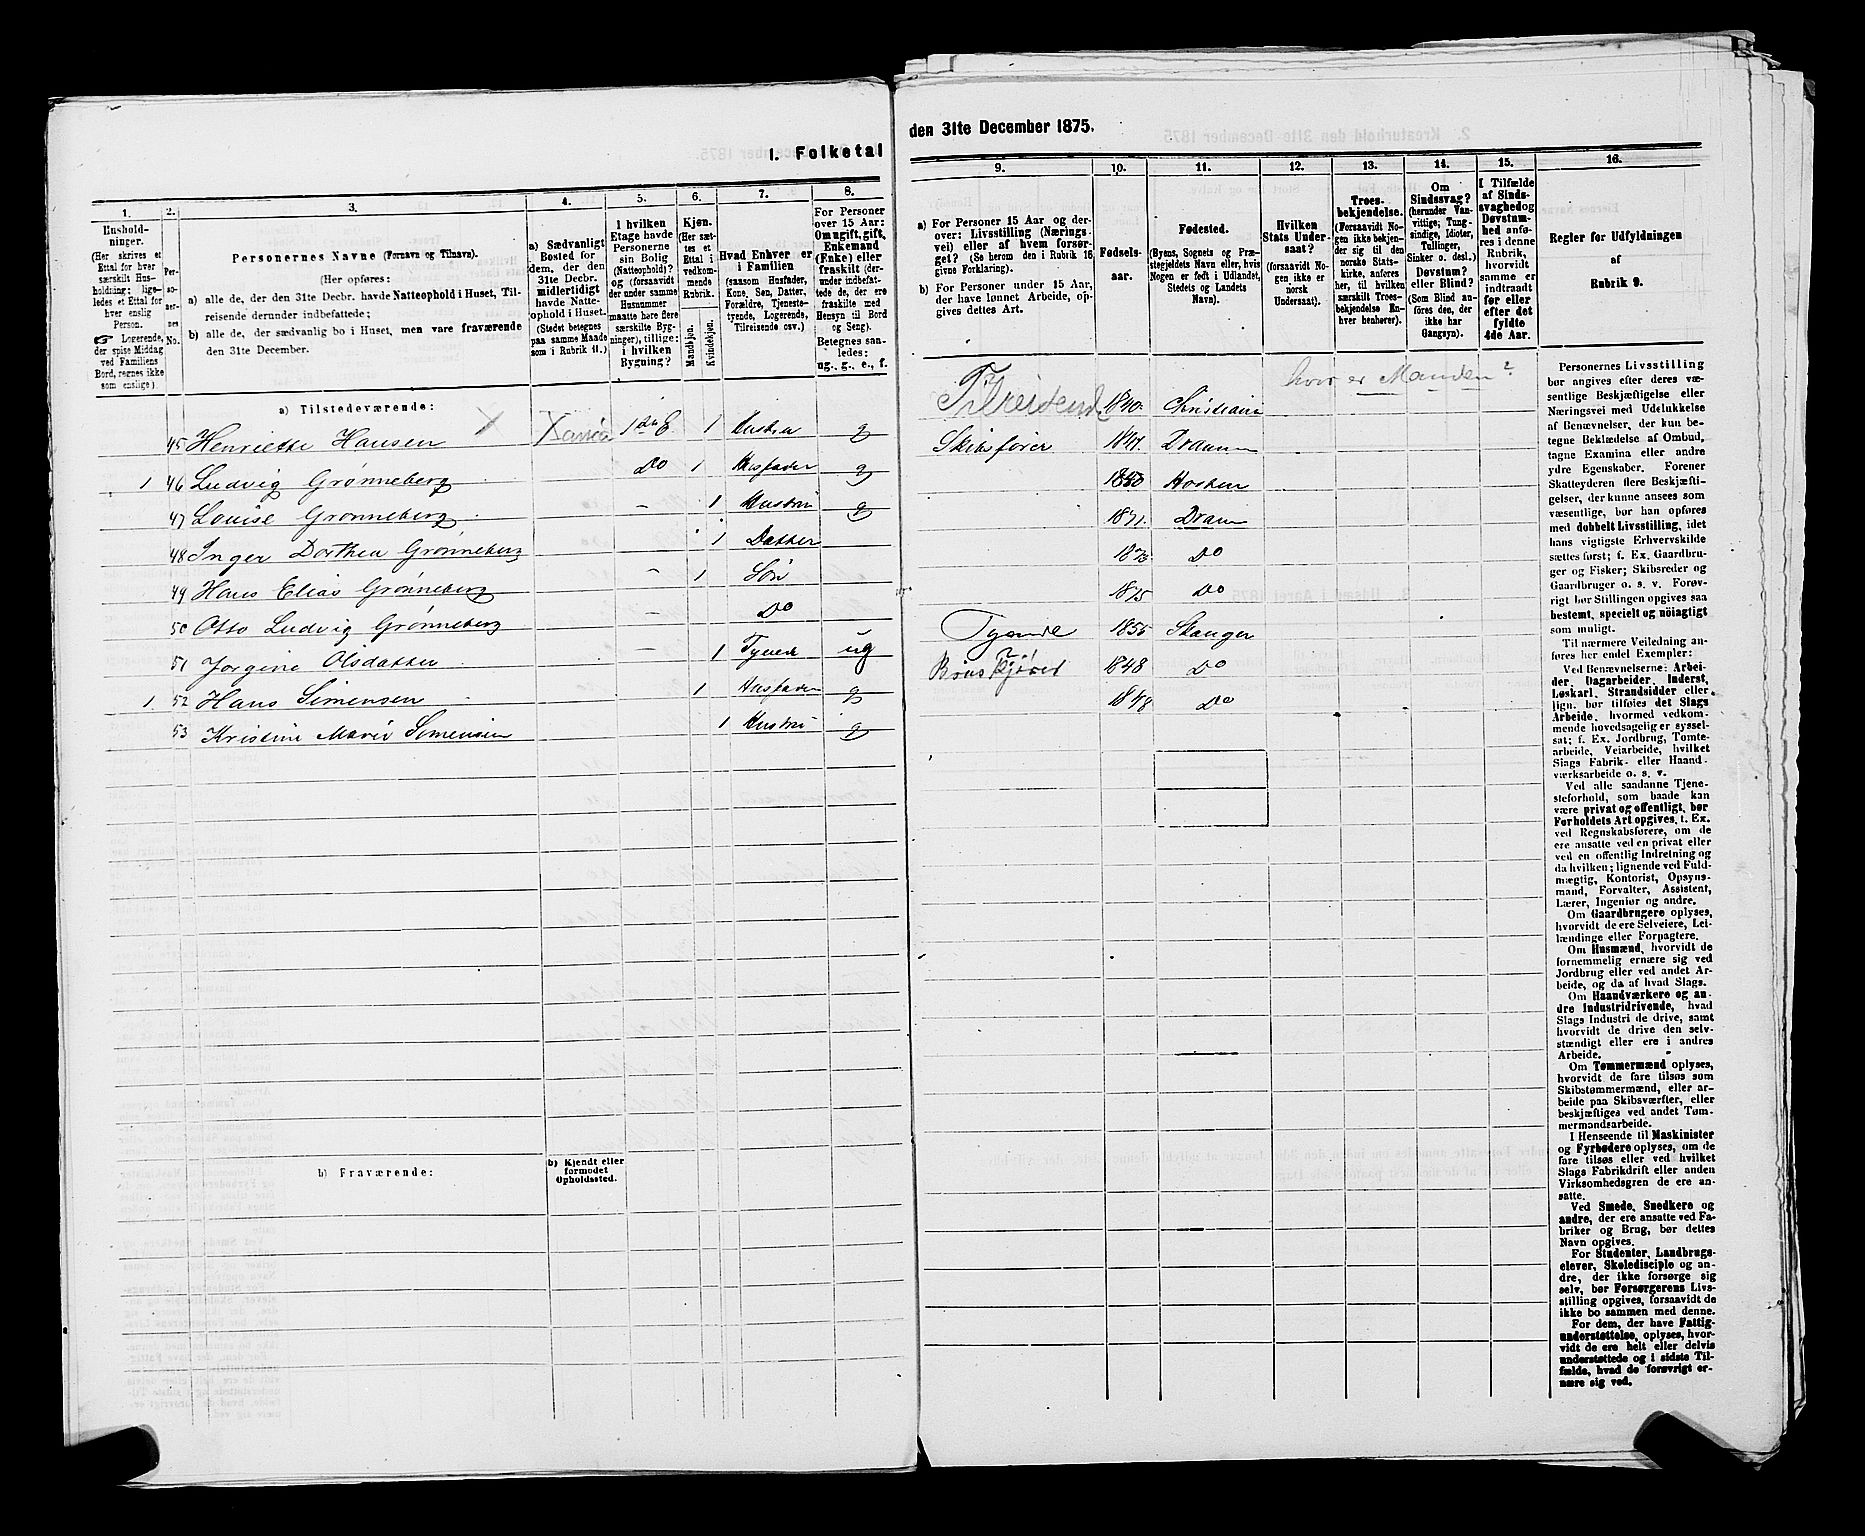 1. Folketal
den 31te December 1875.
1. 2. 3. 4. 5. 6. 7. 8.
Husholdninger.
(Her skrives et
Ettal for hver
særskilt Husholdning;
ligeledes et Ettal for
hver enslig
Person.
Logerende,
der spise Middag
ved Familiens
Bord, regnes ikke
som enslige).
Personernes No.
Personernes Navne (Fornavn og Tilnavn).
(Her opføres:
a) alle de, der den 31te Decbr. havde Natteophold i Huset, Tilreisende derunder indbefattede;
b) alle de, der sædvanlig bo i Huset, men vare fraværende
den 31te December.
a) Sædvanligt
Bosted for
dem, der den
31te Decbr.
midlertidigt
havde Natteophold i Huset.
(Stedet betegnes
paa samme Maade
som i Rubrik 11.)
I hvilken
Etage havde
Personerne
sin Bolig
(Natteophold)?
og (forsaavidt
der under samme
Husnummer
maatte høre flere
særskilte Bygninger), tillige:
i hvilken
Bygning?
Kjøn.
(Her sættes et
Ettal i
vedkommende
Rubrik.
Mandkjøn.
Kvindekjøn.
Hvad Enhver er
i Familien
(saasom Husfader,
Kone, Søn, Datter,
Forældre, Tjenestetyende, Logerende,
Tilreisende osv.)
For Personer
over 15 Aar:
Om ugift, gift,
Enkemand
(Enke) eller
fraskilt (derunder indbefattede de, der ere
fraskilte med
Hensyn til Bord
og Seng).
Betegnes saaledes:
ug., g., e., f.
9. 10. 11. 12. 13. 14. 15. 16.
a) For Personer 15 Aar og derover: Livsstilling (Næringsvei) eller af hvem forsørget? (Se herom den i Rubrik 16
givne Forklaring).
b) For Personer under 15 Aar,
der have lønnet Arbeide, opgives dettes Art.
Fødselsaar.
Fødested.
(Byens, Sognets og Præstegjeldets Navn eller, hvis
Nogen er født i Udlandet,
Stedets og Landets
Navn).
Hvilken
Stats Undersaat?
(forsaavidt Nogen ikke er
norsk
Undersaat).
Troesbekjendelse.
(Forsaavidt Nogen ikke bekjender sig til den
norske Statskirke, anføres
her, til hvilken
særskilt Troesbekjendelse Enhver henhører).
Om
Sindssvag?
(herunder Vanvittige, Tungsindige, Idioter,
Tullinger,
Sinker o. desl.)
Døvstum?
eller Blind?
(Som Blind anføres den, der
ikke har
Gangsyn).
I Tilfælde
af Sindssvaghed og
Døvstumhed anføres i denne
Rubrik,
hvorvidt
samme er
indtraadt
før eller
efter det
fyldte
4de Aar.
Regler for Udfyldningen
af
Rubrik 9.
a) Tilstedeværende:
hvor er Manden?
45 Henriette Hansen X Xania 1ste E. 1 Hustru g Tilreisende 1840. Christiania
1 46 Ludvig Grønneberg Do 1 Husfader g Skibsfører 1841. Dramm
47 Louise Grønneberg - 1 Hustru g 1850 Horten
48 Inger Dorthea Grønneberg 1 Datter 1871. Dram
49 Hans Elias Grønneberg - 1 Søn 1873. Do
50 Otto Ludvig Grønneberg - Do 1875 Do
51 Jorgine Olsdatter - 1 Tyende ug Tyende 1855 Skouger
1. 52 Hans Simensen 1 Husfader g 1848 Do
53 Kristine Marie Simensen 1 Hustru g 1848 Do
b) Fraværende:
b) Kjendt eller
formodet
Opholdssted.
Personernes Livsstilling
bør angives efter deres væsentlige Beskjæftigelse eller
Næringsvei med Udelukkelse
af Benævnelser, der kun betegne Beklædelse af Ombud,
tagne Examina eller andre
ydre Egenskaber. Forener
Skatteyderen flere Beskjæftigelser, der kunne ansees som
væsentlige, bør han opføres
med dobbelt Livsstilling, idet
hans vigtigste Erhvervskilde
sættes først; f. Ex. Gaardbruger og Fisker; Skibsreder og
Gaardbruger o. s. v. Forøvrigt bør Stillingen opgives saa
bestemt, specielt og nøiagtigt
som muligt.
Til nærmere Veiledning anføres her endel Exempler:
Ved Benævnelserne: Arbeider, Dagarbeider, Inderst,
Løskarl, Strandsidder eller lign. bør tilføies det Slags
Arbeide, hvormed vedkommende hovedsagelig er sysselsat; f. Ex. Jordbrug, Tomtearbeide, Veiarbeide, hvilket
Slags Fabrik- eller Haandværksarbeide o. s. v.
Ved alle saadanne Tjenesteforhold, som baade kan
være privat og offentligt, bør
Forholdets Art opgives, t. Ex.
ved Regnskabsførere, om de
ere ansatte ved en privat eller
ved en offentlig Indretning og
da hvilken; lignende ved Fuldmægtig, Kontorist, Opsynsmand, Forvalter, Assistent,
Lærer, Ingeniør og andre.
Om Gaardbrugere oplyses,
hvorvidt de ere Selveiere, Leilændinge eller Forpagtere.
Om Husmænd, hvorvidt de
fornemmelig ernære sig ved
Jordbrug eller ved andet Arbeide, og da af hvad Slags.
Om Haandværkere og andre Industridrivende, hvad
Slags Industri de drive, samt
hvorvidt de drive den selvstændigt eller ere i andres
Arbeide.
Om Tømmermænd oplyses,
hvorvidt de fare tilsøs som
Skibstømmermænd, eller arbeide paa Skibsværfter, eller
beskjæftiges ved andet Tømmermandsarbeide.
I Henseende til Maskinister
og Fyrbødere oplyses, om de
fare tilsøs eller ved hvilket
Slags Fabrikdrift eller anden
Virksomhedsgren de ere ansatte.
Ved Smede, Snedkere og
andre, der ere ansatte ved Fabriker og Brug, bør dettes
Navn opgives.
For Studenter, Landbrugselever, Skoledisciple og andre, der ikke forsørge sig
selv, bør Forsørgerens Livsstilling opgives, forsaavidt de
ikke bo sammen med denne.
For dem, der have Fattigunderstøttelse, oplyses, hvorvidt de ere helt eller delvis
understøttede og i sidste Tilfælde, hvad de forøvrigt ernære sig ved.